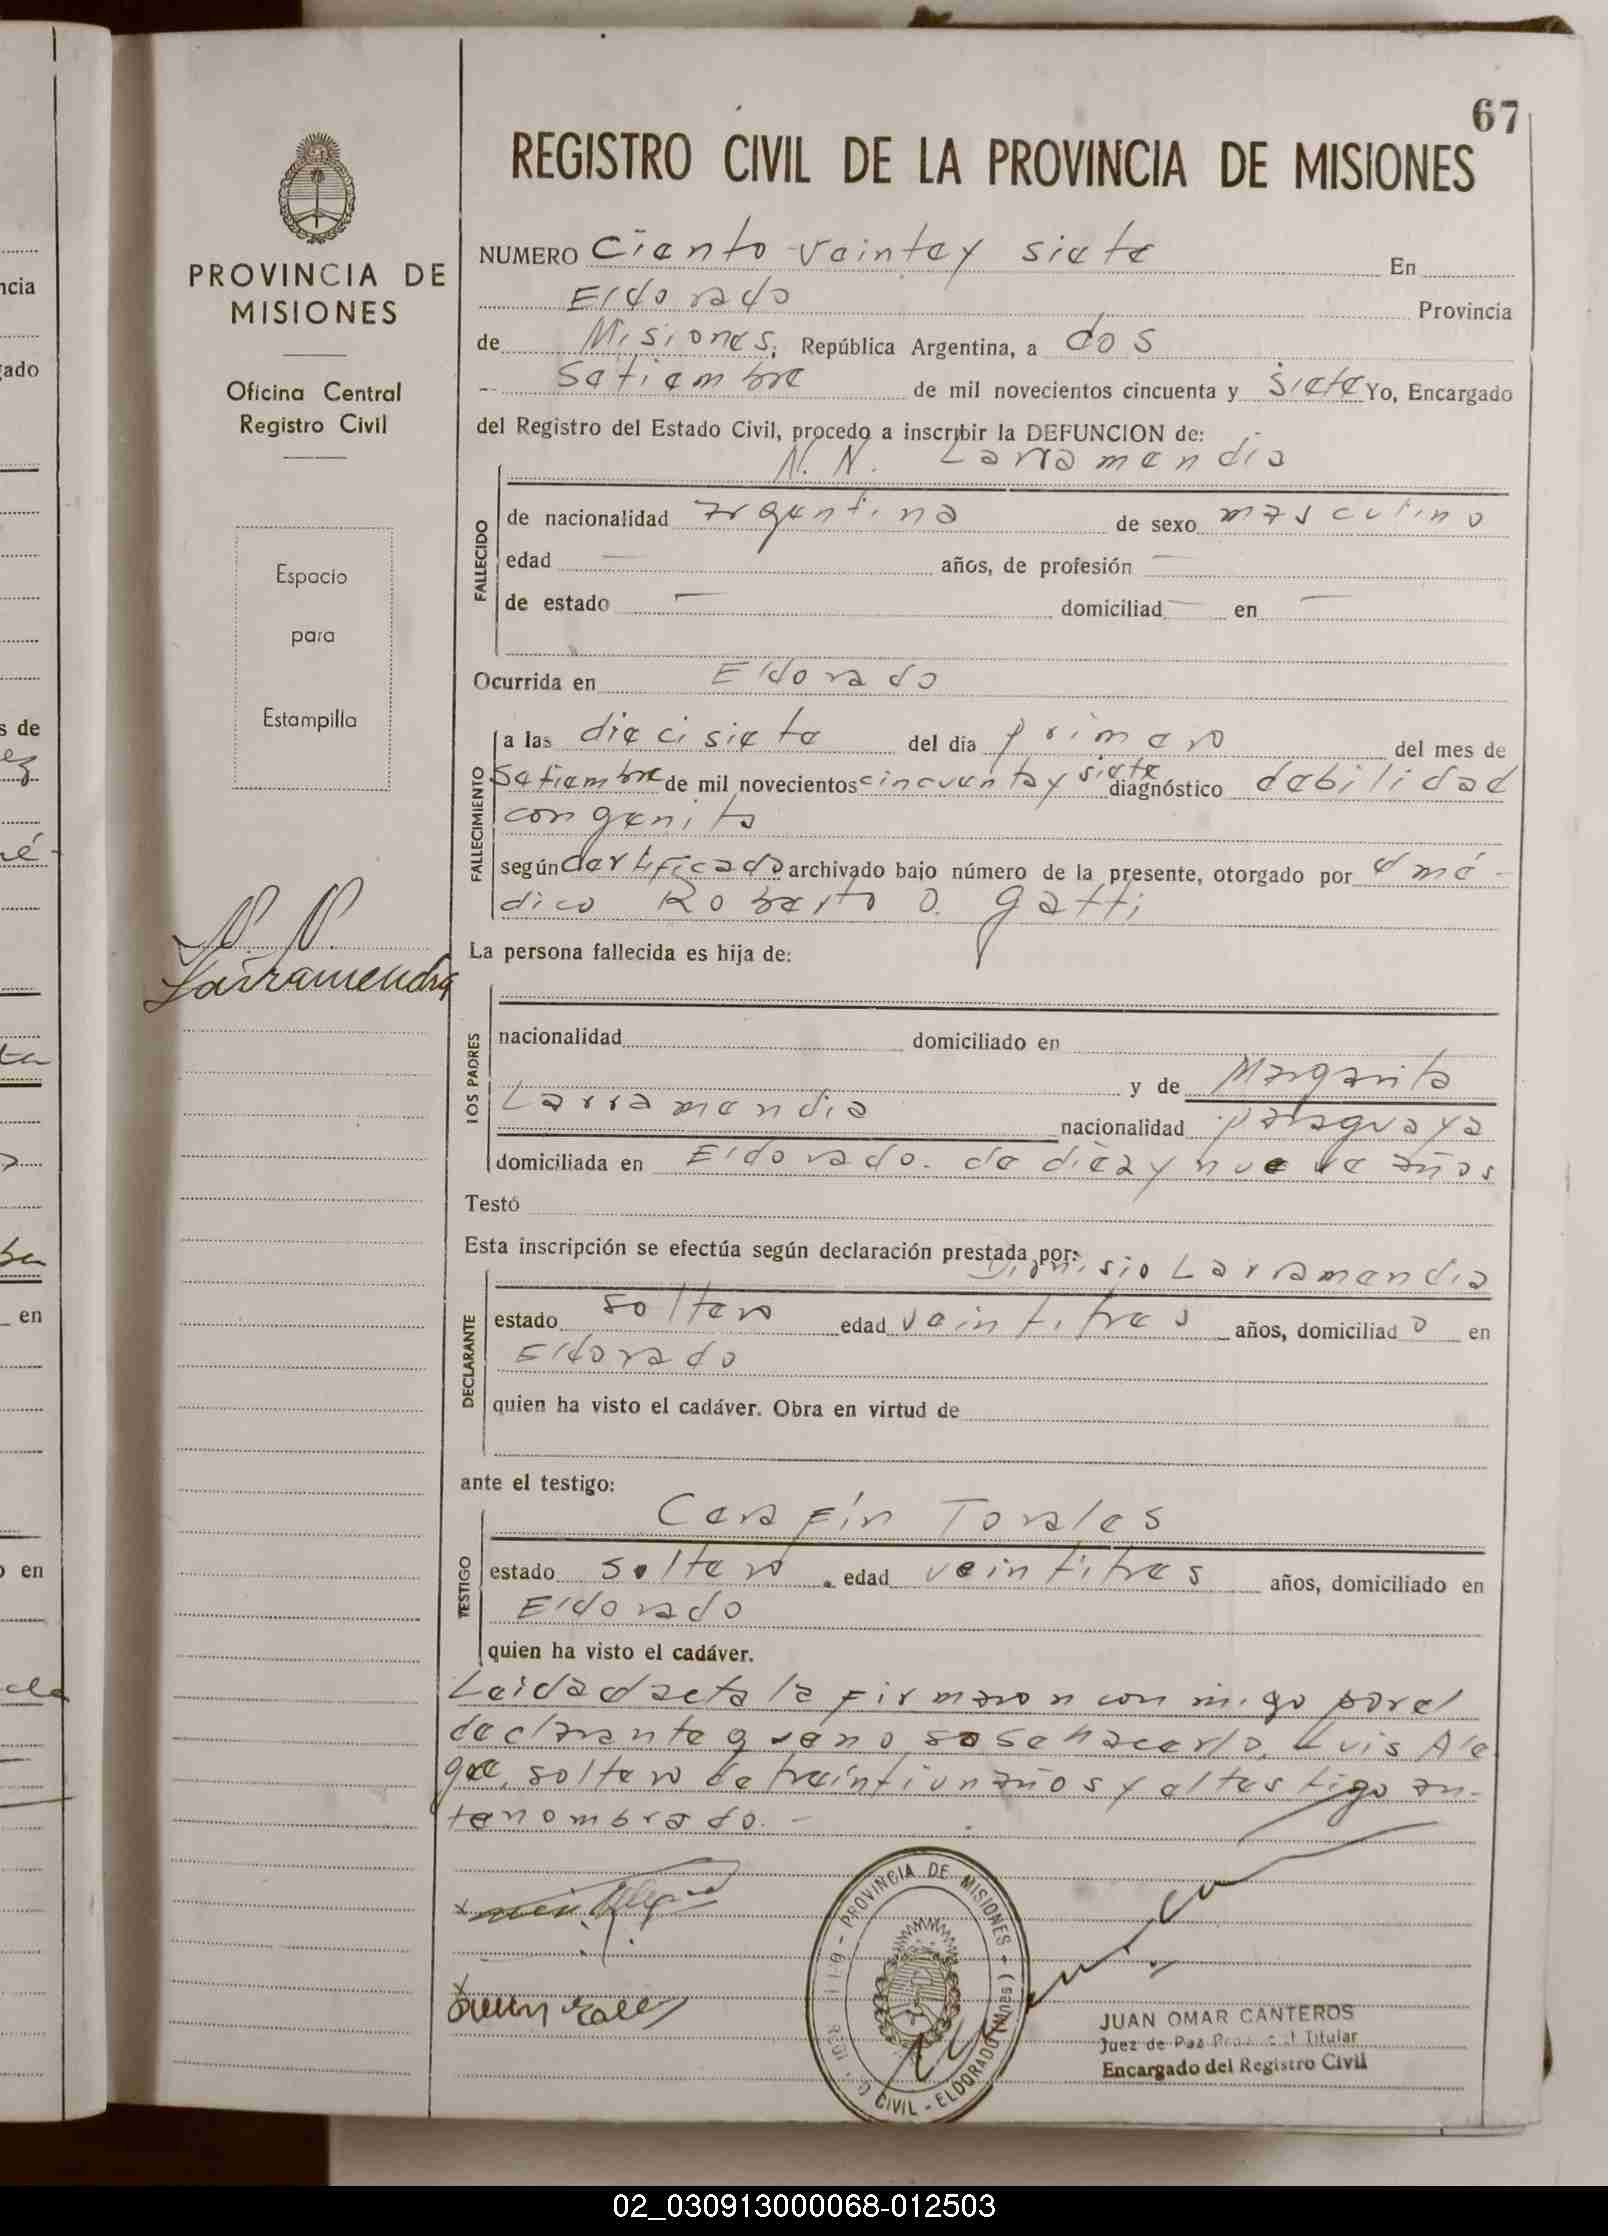 67
REGISTRO CIVIL DE LA PROVINCIA DE MISIONES
PROVINCIA DE
MISIONES
Oficina Central
Registro Civil
Espacio
para
Estampilla
N. N.
Larramendia
NUMERO Ciento veinte y siete En
Eldorado Provincia
de Misiones, República Argentina, a dos
Setiembre de mil novecientos cincuenta y siete Yo, Encargado
del Registro del Estado Civil, procedo a inscribir la DEFUNCION de:
N. N. Larramendia
FALLECIDO
de nacionalidad Argentina de sexo masculino
edad — años, de profesión —
de estado — domiciliad — en —
Ocurrida en Eldorado
FALLECIMIENTO
a las diecisiete del día primero del mes de
Setiembre de mil novecientos cincuenta y siete diagnóstico debilidad
congenita
según certificado archivado bajo número de la presente, otorgado por el mé-
dico Roberto O. Gatti
La persona fallecida es hija de:
LOS PADRES
nacionalidad domiciliado en
y de Margarita
Larramendia nacionalidad paraguaya
domiciliada en Eldorado. de diez y nueve años
Testó
Esta inscripción se efectúa según declaración prestada por:
Dionisio Larramendia
DECLARANTE
estado soltero edad veintitres años, domiciliad o en
Eldorado
quien ha visto el cadáver. Obra en virtud de
ante el testigo:
Cerafín Torales
TESTIGO
estado soltero. edad veintitres años, domiciliado en
Eldorado
quien ha visto el cadáver.
Leida el acta la firmaron conmigo por el
declarante que no sabe hacerlo, Luis Ale
gre, soltero de treintiun años y el testigo an-
tenombrado. -
PROVINCIA DE MISIONES
CIVIL - ELDORADO (Mnes)
JUAN OMAR CANTEROS
Juez de Paz Titular
Encargado del Registro Civil
ncia
gado
s de
en
o en
02_030913000068-012503